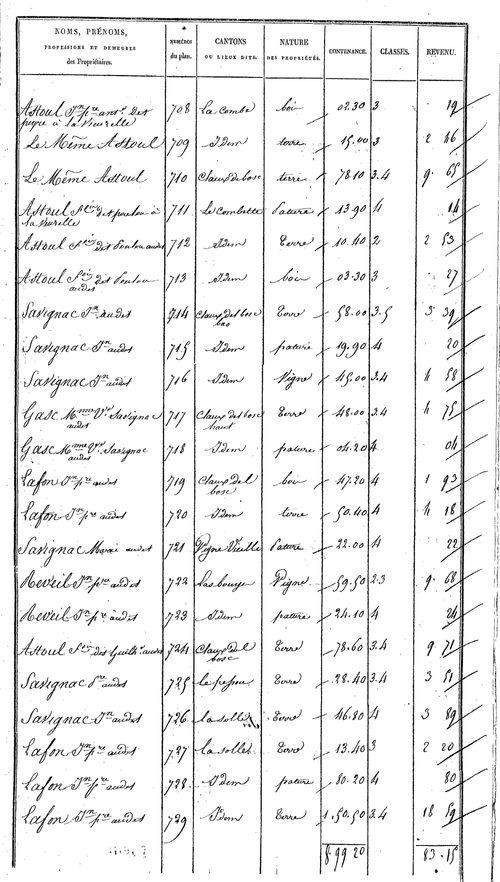 NOMS, PRÉNOMS, PROFESSIONS ET DEMEURES des Propriétaires. NUMÉROS du plan. CANTONS OU LIEUX DITS. NATURE DES PROPRIÉTÉS. CONTENANCE. CLASSES. REVENU.
Astoul Jn pre ant. des 708 La Combe bois 02.30 3 19
à la Veurelle
Le Même Astoul 709 Idem terre 15.00 3 2 46
Le Même Astoul 710 Claux del bosc terre 78.10 3.4 9. 65
Astoul à 711 Le Combette Pature 13.90 4 14
la Veurelle
Astoul 712 Idem Terre 10.40 2 2 53
Astoul 713 Idem bois 03.30 3 27
audes
Savignac Jn audes 714 Claux del bosc Terre 58.00 3.5 3 39
bas
Savignac Jn audes 715 Idem pature 19.90 4 20
Savignac Jn audes 716 Idem Vigne 45.00 3.4 4 58
Gasc Mme Ve Savignac 717 Claux del bosc Terre 48.00 3.4 4 75
audes haut
Gasc Mme Ve Savignac 718 Idem pature 04.20 4 04
audes
Lafon Jn pre audes 719 Claux del bois 47.20 4 1 93
bosc
Lafon Jn pre audes 720 Idem terre 50.40 4 4 18
Savignac Marie audes 721 Vigne Vieille Pature 22.00 4 22
Reveil Jn pre audes 722 Las bouyes Vigne 59.50 2.3 9. 68
Reveil Jn pre audes 723 Idem pature 24.10 4 24
Astoul des audes 724 Claux del Terre 78.60 3.4 9 71
bosc
Savignac audes 725 Terre 28.40 3.4 3 51
Savignac Jn audes 726 Terre 46.80 4 3 89
Lafon Jn pre audes 727 La sollet Terre 13.40 3 2 20
Lafon Jn pre audes 728 Idem pature 80.20 4 80
Lafon Jn pre audes 729 Idem Terre 1.50.50 3.4 18 59
8.99 20 83.15